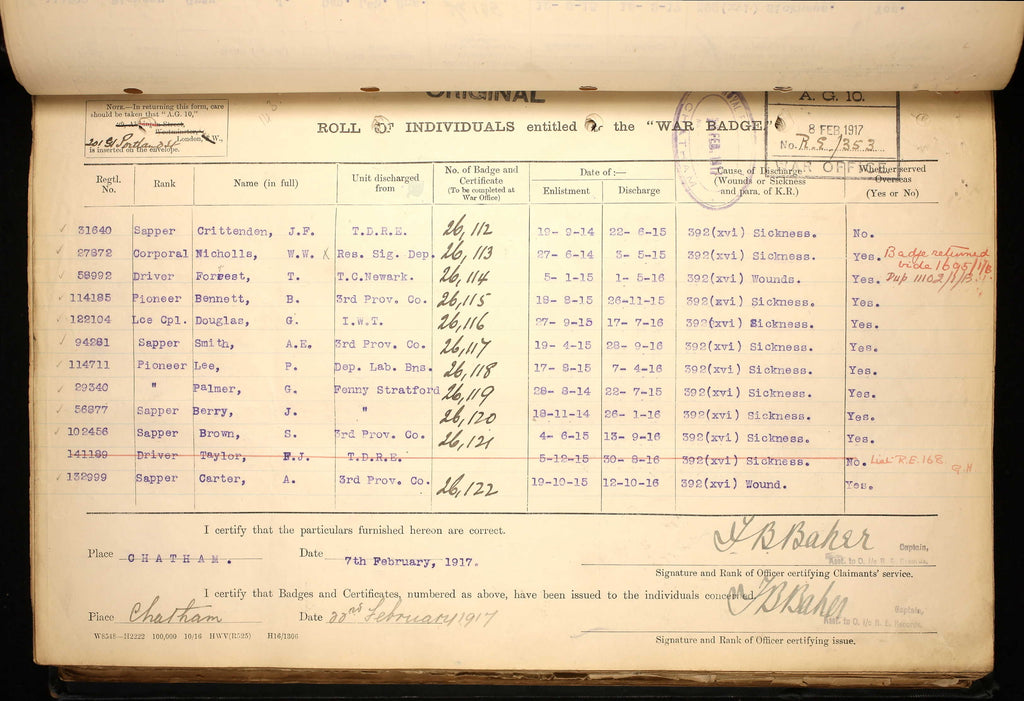 ORIGINAL
NOTE.—In returning this form, care
should be taken that "A.G. 10,"
Westminster,
London, S.W.,
is inserted on the envelope.
ROLL OF INDIVIDUALS entitled to the "WAR BADGE."
A. G. 10.
8 FEB 1917
No. R.E./353
WAR OFFICE
CHATHAM
Regtl. No. Rank Name (in full) Unit discharged from No. of Badge and Certificate (To be completed at War Office) Date of:— Enlistment Discharge Cause of Discharge (Wounds or Sickness and para. of K.R.) Whether served Overseas (Yes or No)
31640 Sapper Crittenden, J.F. T.D.R.E. 26,112 19- 9-14 22- 6-15 392(xvi) Sickness. No.
27872 Corporal Nicholls, W.W. X Res. Sig. Dep. 26,113 27- 6-14 3- 5-15 392(xvi) Sickness. Yes. Badge returned
vide 1695/1/B
58992 Driver Forrest, T. T.C.Newark. 26,114 5- 1-15 1- 5-16 392(xvi) Wounds. Yes. Dup 11102/1/B
114185 Pioneer Bennett, B. 3rd Prov. Co. 26,115 18- 8-15 26-11-15 392(xvi) Sickness. Yes.
122104 Lce Cpl. Douglas, G. I.W.T. 26,116 27- 9-15 17- 7-16 392(xvi) Sickness. Yes.
94281 Sapper Smith, A.E. 3rd Prov. Co. 26,117 19- 4-15 28- 9-16 392(xvi) Sickness. Yes.
114711 Pioneer Lee, P. Dep. Lab. Bns. 26,118 17- 8-15 7- 4-16 392(xvi) Sickness. Yes.
29340 " Palmer, G. Fenny Stratford 26,119 28- 8-14 22- 7-15 392(xvi) Sickness. Yes.
56877 Sapper Berry, J. " 26,120 18-11-14 26- 1-16 392(xvi) Sickness. Yes.
102456 Sapper Brown, S. 3rd Prov. Co. 26,121 4- 6-15 13- 9-16 392(xvi) Sickness. Yes.
141189 Driver Taylor, F.J. T.D.R.E. 5-12-15 30- 8-16 392(xvi) Sickness. No. List R.E. 168.
132999 Sapper Carter, A. 3rd Prov. Co. 26,122 19-10-15 12-10-16 392(xvi) Wound. Yes.
I certify that the particulars furnished hereon are correct.
Place CHATHAM. Date 7th February, 1917. F B Baker Captain,
Asst. to O. i/c R. E. Records.
Signature and Rank of Officer certifying Claimants' service.
I certify that Badges and Certificates, numbered as above, have been issued to the individuals concerned.
Place Chatham Date 22nd February 1917 F B Baker Captain,
Asst. to O. i/c R. E. Records.
W8548—H2222 100,000 10/16 HWV(R525) H16/1306
Signature and Rank of Officer certifying issue.